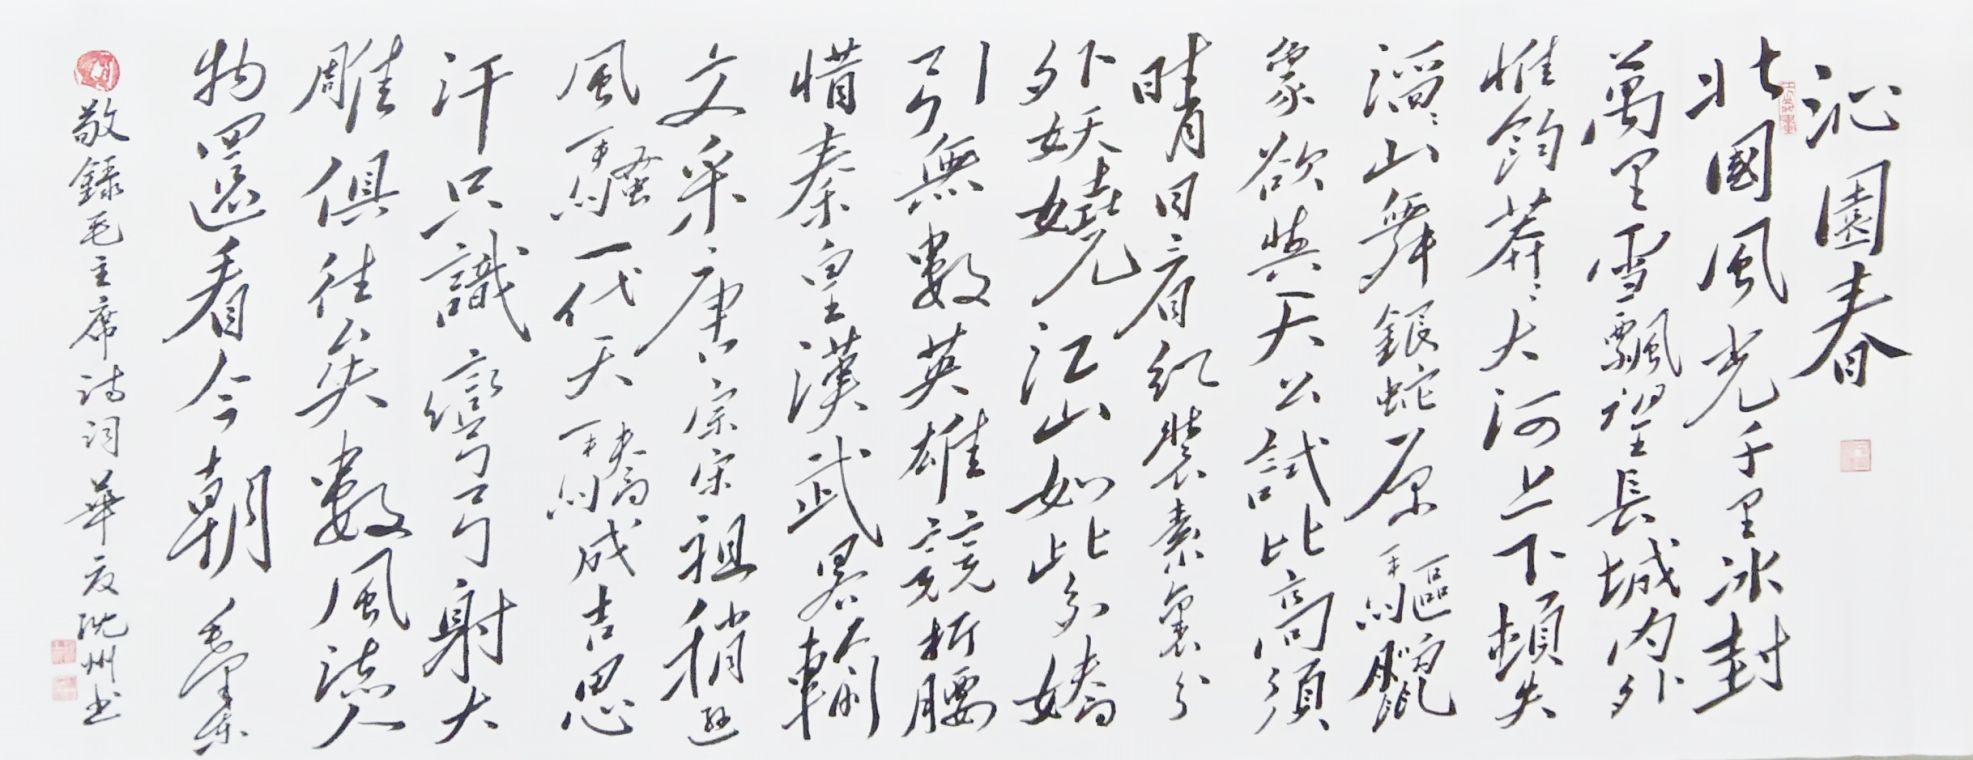 沁園春
北國風光千里冰封
萬里雪飄望長城内外
惟餘莽〻大河上下頓失
滔〻山舞銀蛇原驅臘
象欲與天公試比高須
晴日看紅裝素裹分
外妖嬈江山如此多嬌
引無數英雄競折腰
惜秦皇漢武畧輸
文采唐宗宋祖稍遜
風騷一代天驕成吉思
汗只識彎弓射大
雕俱往矣數風流人
物還看今朝 毛澤東
敬録毛主席诗词華夏沈州书